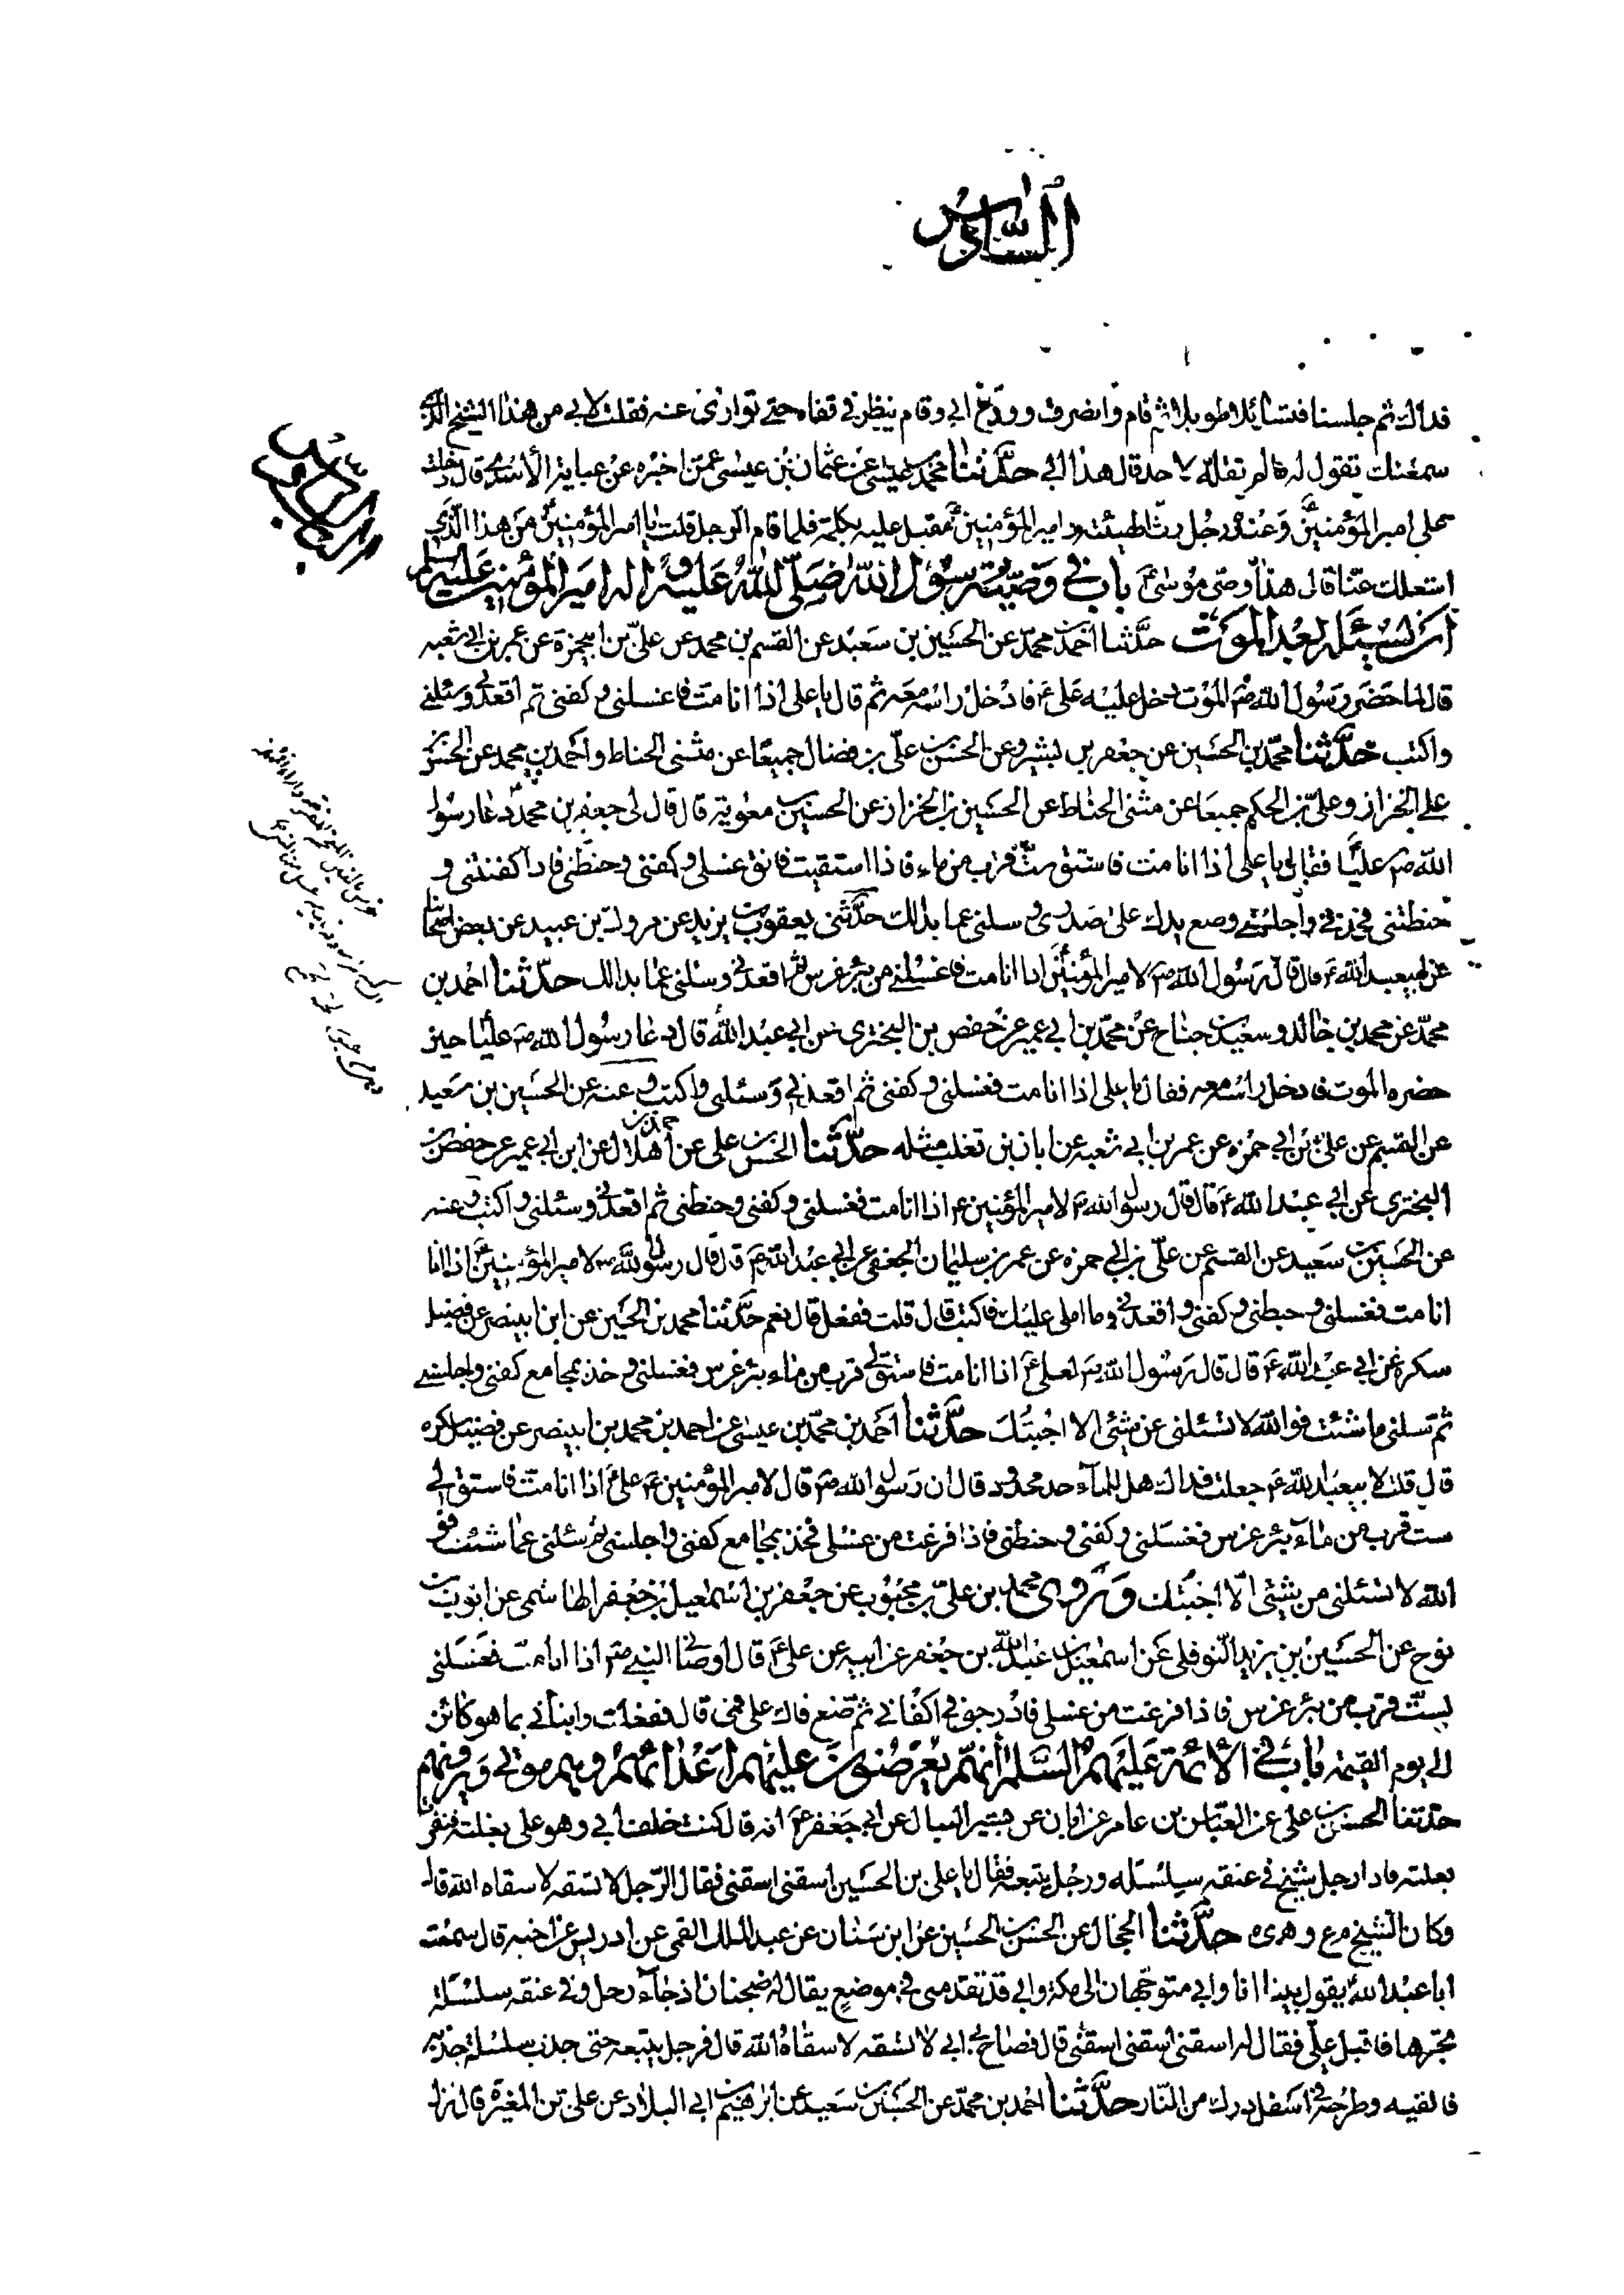 السّادس
فداك ثم جلسنا فتسائلا طويلا ثم قام وانصرف وودّع ابي وقام ينظر في قفاه حتى توارى عنه فقلت لابي من هذا الشيخ الذي
سمعتك تقول له ما لم تقله لاحد قال هذا ابي حدّثنا محمد بن عيسى عن عثمان بن عيسى عمّن اخبره عن عباية الأسدي قال دخلت
على امير المؤمنين وعنده رجل رث الهيئة وامير المؤمنين مقبل عليه يكلمه فلما قام الرجل قلت يا امير المؤمنين من هذا الذي
اشغلك عنّا قال هذا وصى موسى ع باب في وصيّة رسول الله صلّى الله عليه و اله امير المؤمنين عليه السلم
ان يسئله بعد الموت حدّثنا احمد بن محمد عن الحسين بن سعيد عن القسم بن محمد عن علىّ بن ابيحمزة عن عمر بن ابي شعبه
قال لما حضر رسول الله ص الموت دخل عليه على ع فادخل راسه معه ثم قال يا على اذا انا مت فاغسلنى و كفنى ثم اقعدنى وسئلنى
واكتب حدّثنا محمّد بن الحسين عن جعفر بن بشير وعن الحسن بن علىّ بن فضال جميعًا عن مثنى الحناط واحمد بن محمد عن الحسن بن
على الخزاز وعلىّ بن الحكم جميعا عن مثنى الحناط عن الحسين بن الخزاز عن الحسين بن معوية قال قال لى جعفر بن محمد دعا رسول
الله ص عليًّا فقال يا على اذا انا مت فاستق ست قرب من ماء فاذا استقيت فانق غسلى و كفنى و حنطنى فاذا كفنتنى و
حنطتنى فخذنى واجلسنى وضع يدك على صدرى وسلنى عما بدالك حدّثنى يعقوب بن يزيد عن مروك بن عبيد عن بعض اصحابنا
عن ابيعبد الله ع قال قال رسول الله ص لامير المؤمنين اذا انا مت فاغسلنى من بئر غرس ثم اقعدنى وسئلنى عما بدالك حدّثنا احمد بن
محمّد عن محمد بن خالد وسعيد بن جناح عن محمّد بن ابي عمير عن حفص بن البخترى عن ابي عبد الله قال دعا رسول الله ص عليا حين
حضره الموت فادخل راسه معه فقال يا على اذا انا مت فغسلنى و كفنى ثم اقعدنى وسئلنى واكتب وعنه عن الحسين بن سعيد
عن القسم عن علىّ بن ابي حمزه عن عمر بن ابي شعبه عن ابان بن تغلب مثله حدّثنا الحسن بن على عن احمد بن هلال عن ابن ابي عمير عن حفص بن
البخترى عن ابي عبد الله ع قال قال رسول الله ص لامير المؤمنين ع اذا انا مت فغسلنى و كفنى و حنطنى ثم اقعدنى وسئلنى واكتب وعنه
عن الحسين بن سعيد عن القسم عن علىّ بن ابي حمزه عن عمر بن سليمان الجعفى عن ابي عبد الله ع قال قال رسول الله ص لامير المؤمنين اذا انا
انا مت فغسلنى و حنطنى و كفنى و اقعدنى وما املى عليك فاكتب قال قلت ففعل قال نعم حدّثنا محمد بن الحسين عن ابن ابينصر عن فضيل
سكره عن ابي عبد الله ع قال قال رسول الله ص لعلى ع اذا انا مت فاستق لى ست قرب من ماء بئر غرس فغسلنى وخذ بمجامع كفنى واجلسنى
ثم سلنى ما شئت فو الله لا تسئلنى عن شئى الا اجبتك حدّثنا احمد بن محمّد بن عيسى عن احمد بن محمد بن ابينصر عن فضيل سكره
قال قلت لابيعبد الله ع جعلت فداك هل للماء حد محدود قال ان رسول الله ص قال لامير المؤمنين ع على ع اذا انا مت فاستق لى
ست قرب من ماء بئر غرس فغسّلنى و كفنى و حنطنى فاذا فرغت من غسلى فخذ بمجامع كفنى و اجلسنى ثم سئلنى عما شئت فو
الله لا تسئلنى من شئى الّا اجبتك وروى محمد بن علىّ بن محبوب عن جعفر بن اسمعيل بن جعفر الهاشمى عن ايوب بن
نوح عن الحسين بن يزيد النوفلى عن اسمعيل بن عبد الله بن جعفر عن ابيه عن على ع قال اوصانى النبى ص اذا انا مت فغسّلنى
بستّ قرب من بئر غرس فاذا فرغت من غسلى فادرجنى في اكفانى ثم ضع فاك على فمى قال ففعلت وانبأنى بما هو كائن
الى يوم القيمة باب في الأئمة عليهم السّلم أنهم يعرضون عليهم اعدائهم وهم موتى ويرونهم
حدّثنا الحسن بن على عن العبّاس بن عامر عن ابان عن بشير النبال عن ابي جعفر ع انه قال كنت خلف ابي وهو على بغلته فنفرت
بغلته فاذا رجل شيخ في عنقه سلسله ورجل يتبعه فقال يا على بن الحسين اسقنى اسقنى فقال الرّجل لا تسقه لا سقاه الله قال
وكان الشيخ معوهه حدّثنا الحجال عن الحسن بن الحسين عن ابن سنان عن عبد الملك القمى عن ادريس عن اخيه قال سمعت
ابا عبد الله يقول بينا انا وابي متوجّهان الى مكة وابي قد تقدمنى في موضع يقال له ضجنان اذ جاء رجل وفى عنقه سلسلة
يجرها فاقبل علىّ فقال له اسقنى اسقنى اسقنى قال فصاح بي ابي لا تسقه لا سقاه الله قال فرجل يتبعه حتى جذب سلسلته جذبة
فالقيه و طرحه في اسفل درك من النّار حدّثنا احمد بن محمّد عن الحسين بن سعيد عن ابرهيم بن ابي البلاد عن على بن المغيرة قال نزل